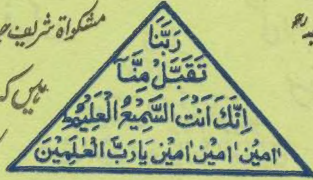 مشکواۃ شریف
رَبَّنَا
تَقَبَّلْ مِنَّا
اِنَّكَ اَنْتَ السَّمِيْعُ الْعَلِيْمُ
اٰمین اٰمین اٰمین یَارَبَّ الْعٰلَمِیْنَ